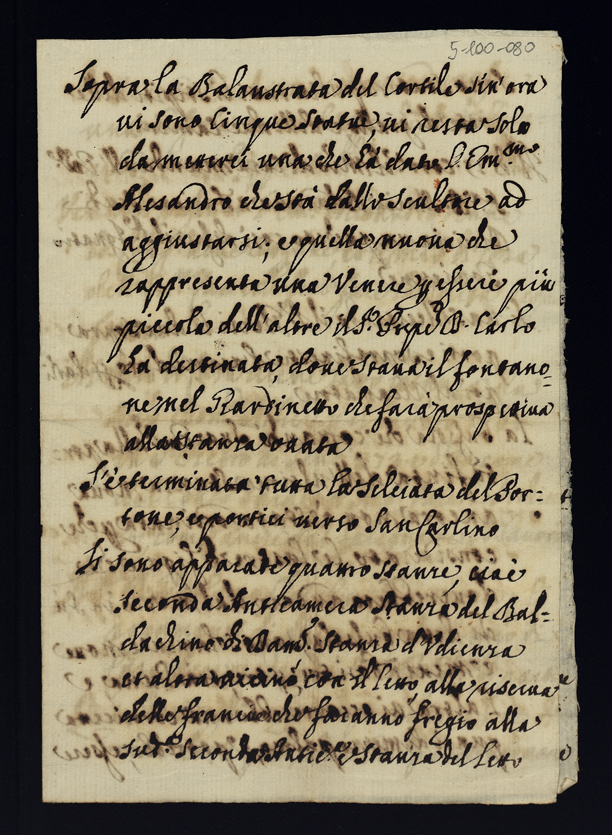 5-100-080
Sopra la Balaustrata del Cortile sin' ora
vi sono Cinque Statue, vi resta solo
da metterci una che hà dato l'Em.mo
Alesandro che stà dallo scultore ad
aggiustarsi; e quella nuova che
rappresenta una Venere p essere più
piccola dell'altre il S.r Pnpe D. Carlo
hà destinata, dove stava il fontano=
ne nel Giardinetto che farà prospettiva
alla stanza ovata
S'è terminata tutta la selciata del Por=
tone, e portici verso San Carlino
Si sono apparate quattro stanze, cioè
seconda Anticamera stanza del Bal=
dachino di Dam.o stanza d'Udienza
et altra vicino, con il letto, alla riserva
delle francie che faranno fregio alla
sud.a seconda Antic.a e stanza del letto